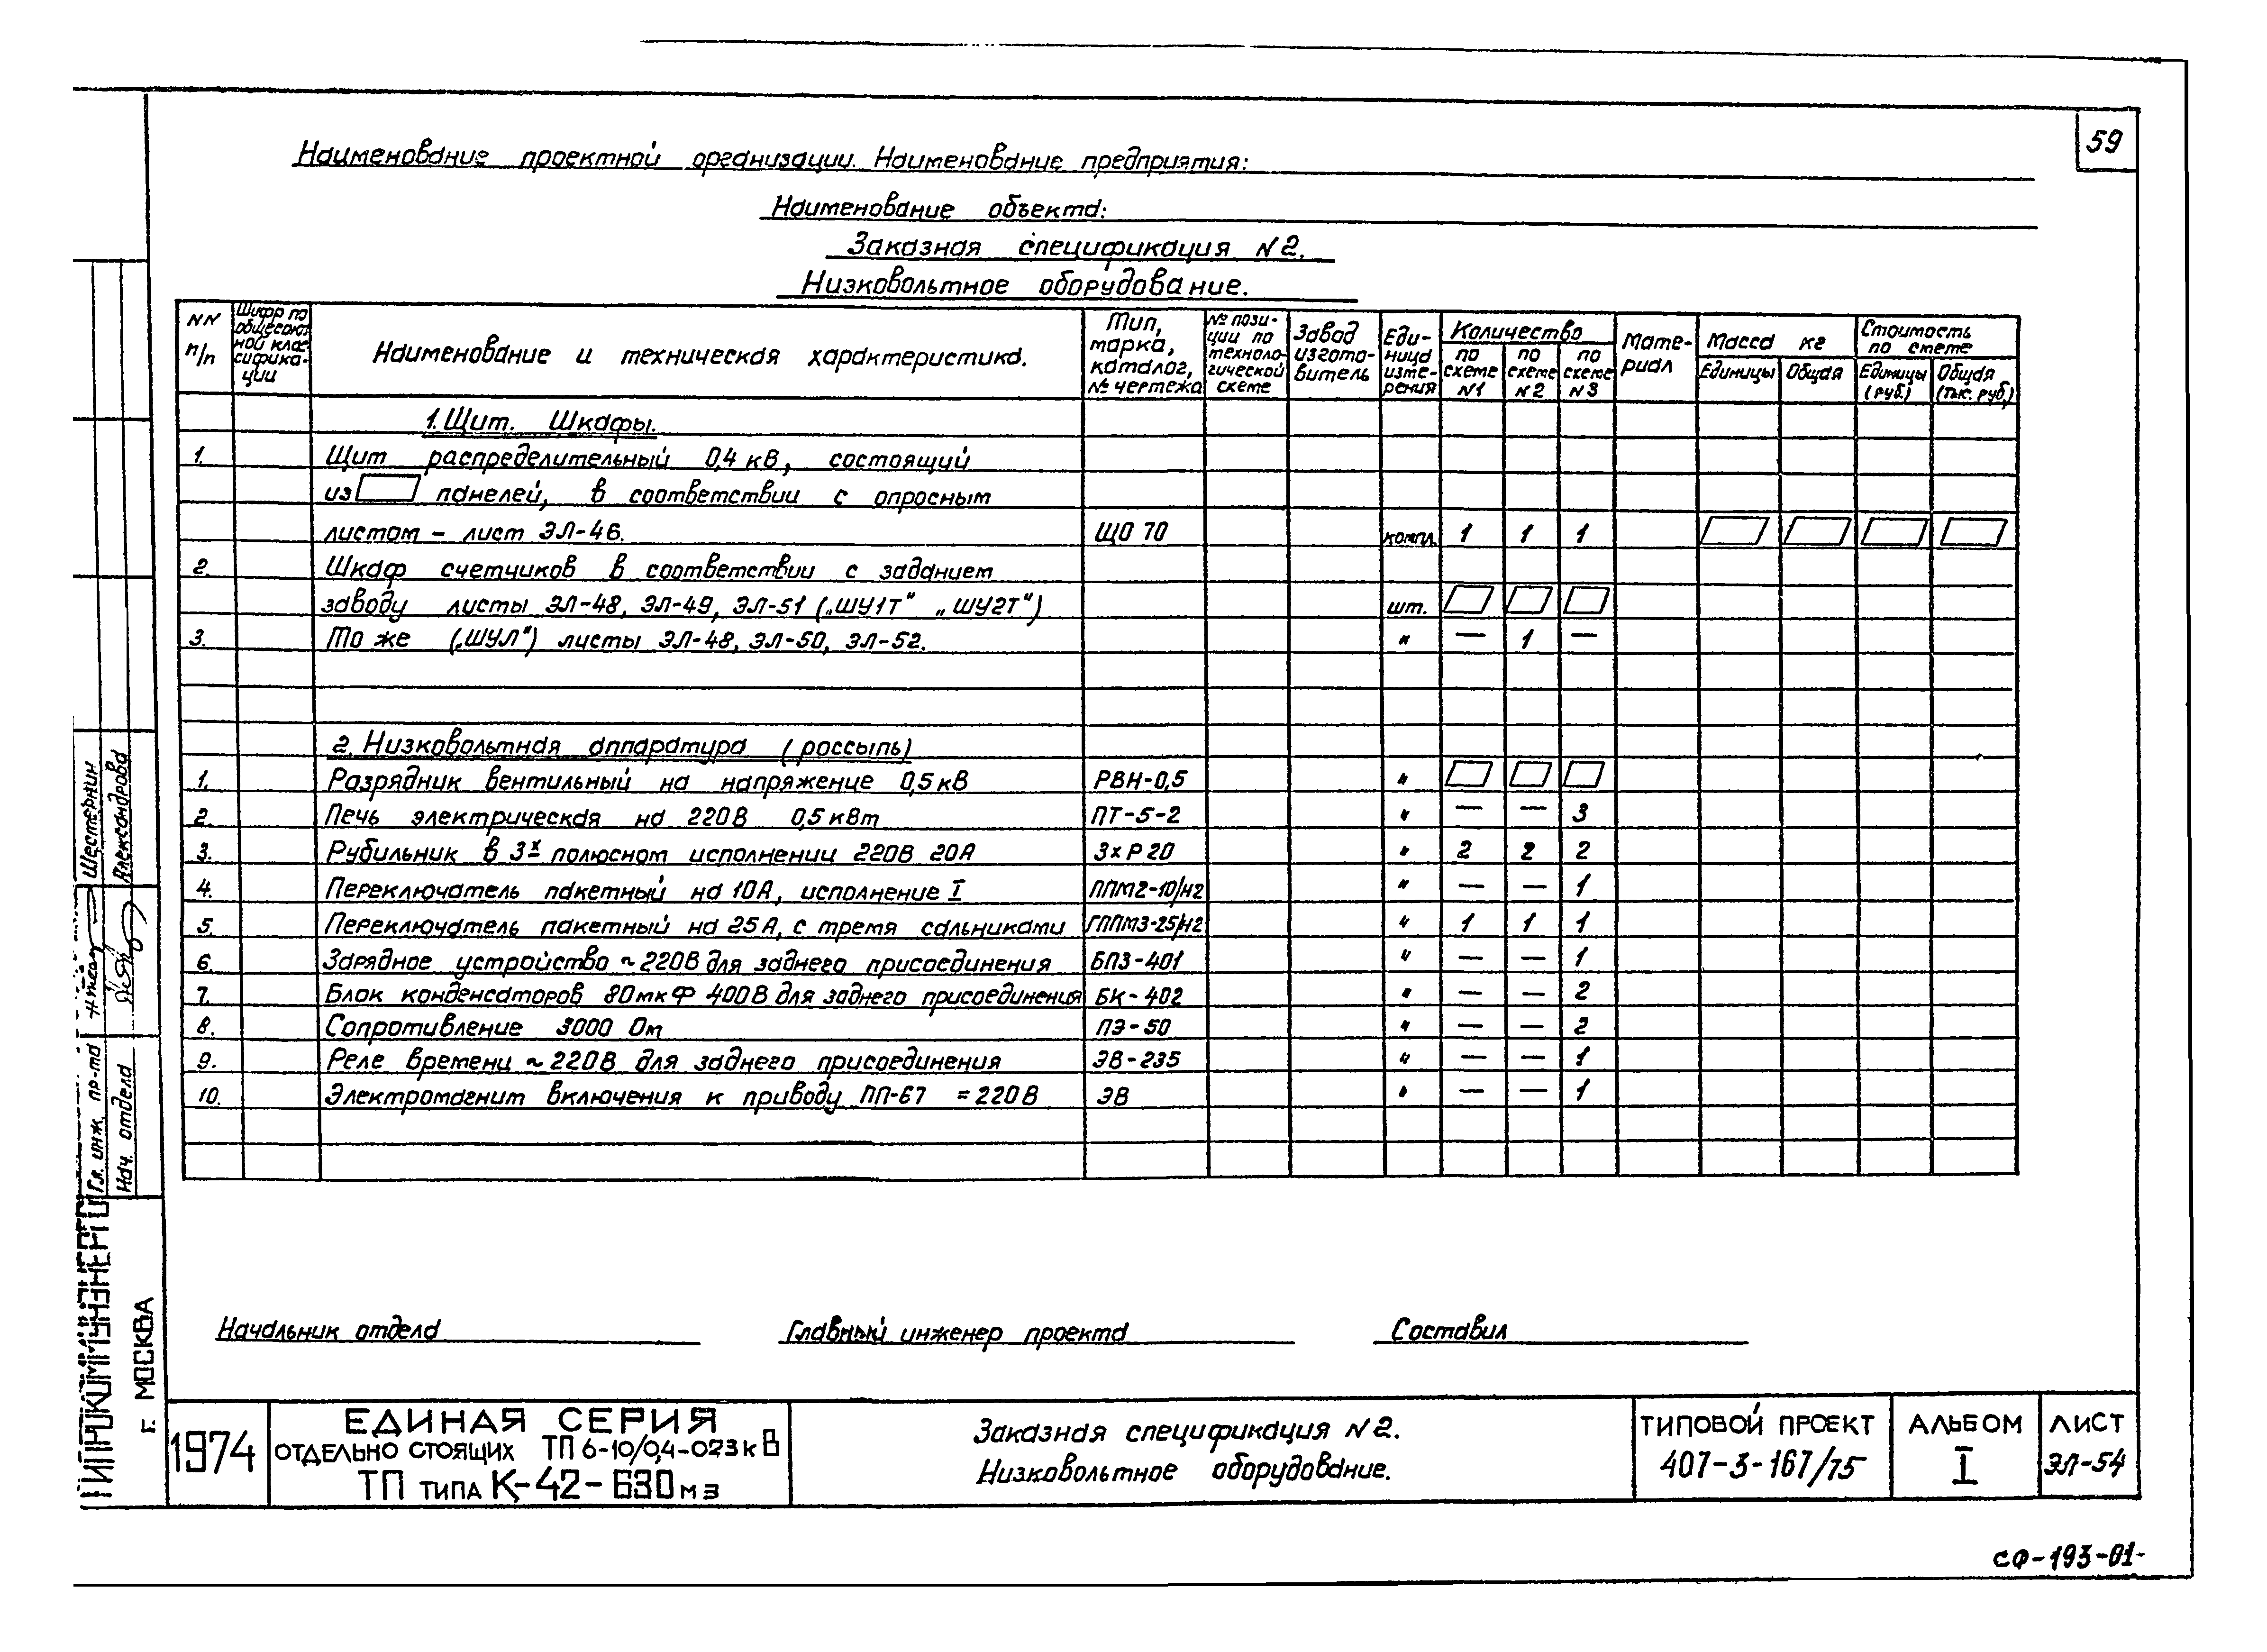 59
Наименование проектной организации. Наименование предприятия:
Наименование объекта:
Заказная спецификация N2.
Низковольтное оборудование.
NN п/п
Шифр по общесоюзной классификации
Наименование и техническая характеристика.
Тип, марка, каталог, № чертежа
№ позиции по технологической схеме
Завод изготовитель
Единица измерения
Количество
по схеме N1
по схеме N2
по схеме N3
Материал
Масса кг
Единицы
Общая
Стоимость по смете
Единицы (руб.)
Общая (тыс. руб.)
1. Щит. Шкафы.
1. Щит распределительный 0,4 кВ, состоящий
из панелей, в соответствии с опросным
листом – лист ЭЛ-46. ЩО 70 компл. 1 1 1
2. Шкаф счетчиков в соответствии с заданием
заводу листы ЭЛ-48, ЭЛ-49, ЭЛ-51 („ШУ1Т" „ШУ2Т") шт.
3. То же („ШУЛ") листы ЭЛ-48, ЭЛ-50, ЭЛ-52. " — 1 —
2. Низковольтная аппаратура (россыпь)
1. Разрядник вентильный на напряжение 0,5 кВ РВН-0,5 "
2. Печь электрическая на 220В 0,5 кВт ПТ-5-2 " — — 3
3. Рубильник в 3х полюсном исполнении 220В 20А 3хР20 " 2 2 2
4. Переключатель пакетный на 10А, исполнение I ППМ2-10/Н2 " — — 1
5. Переключатель пакетный на 25А, с тремя сальниками ГППМ3-25/Н2 " 1 1 1
6. Зарядное устройство ~220В для заднего присоединения БПЗ-401 " — — 1
7. Блок конденсаторов 80мкФ 400В для заднего присоединения БК-402 " — — 2
8. Сопротивление 3000 Ом ПЭ-50 " — — 2
9. Реле времени ~220В для заднего присоединения ЭВ-235 " — — 1
10. Электромагнит включения к приводу ПП-67 =220В ЭВ " — — 1
Начальник отдела
Главный инженер проекта
Составил
Шестернин
Александрова
Гл. инж. пр-та
Нач. отдела
ГИПРОКОММУНЭНЕРГО
г. МОСКВА
1974
ЕДИНАЯ СЕРИЯ
ОТДЕЛЬНО СТОЯЩИХ ТП 6-10/0,4-023кВ
ТП ТИПА К-42-630 м3
Заказная спецификация N2.
Низковольтное оборудование.
ТИПОВОЙ ПРОЕКТ
407-3-167/75
АЛЬБОМ
I
ЛИСТ
ЭЛ-54
СФ-193-01-